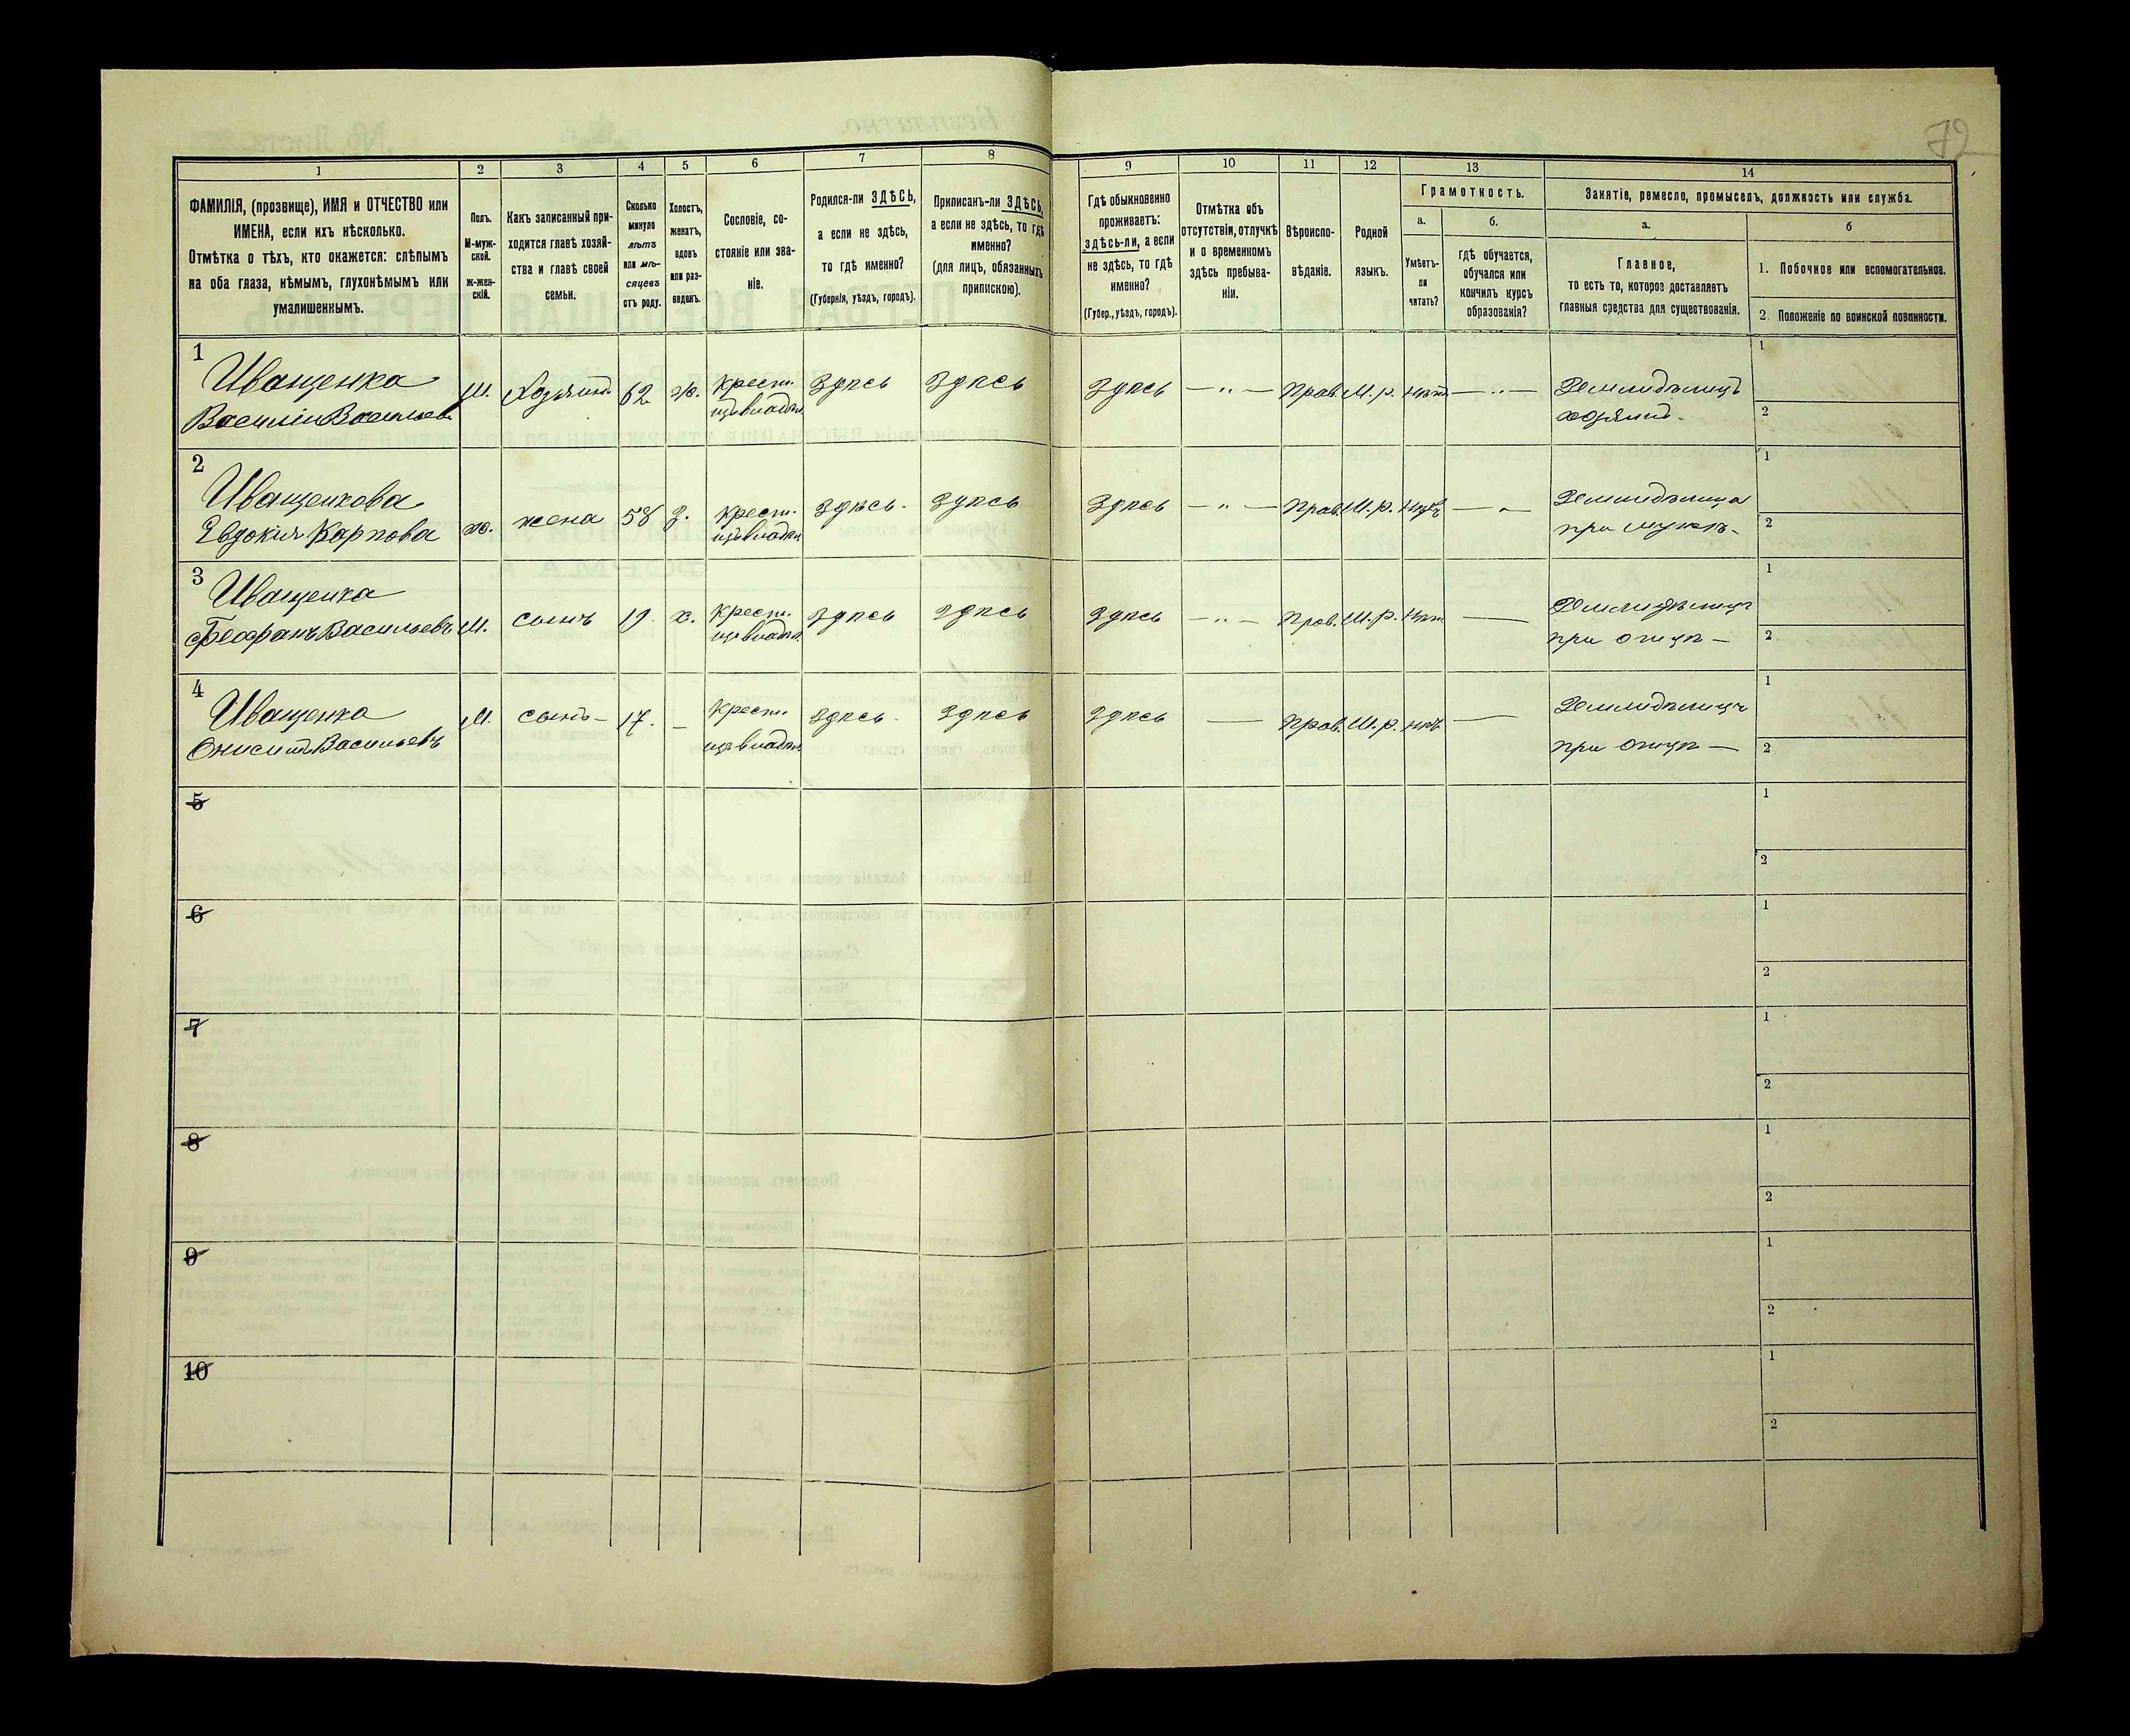 72
1 2 3 4 5 6 7 8 9 10 11 12 13 14
ФАМИЛІЯ, (прозвище), ИМЯ и ОТЧЕСТВО или
ИМЕНА, если ихъ нѣсколько.
Отмѣтка о тѣхъ, кто окажется: слѣпымъ
на оба глаза, нѣмымъ, глухонѣмымъ или
умалишеннымъ.
Полъ.
М-муж-
ской.
ж-жен-
скій.
Какъ записанный при-
ходится главѣ хозяй-
ства и главѣ своей
семьи.
Сколько
минуло
лѣтъ
или мѣ-
сяцевъ
отъ роду.
Холостъ,
женатъ,
вдовъ
или раз-
веденъ.
Сословіе, со-
стояніе или зва-
ніе.
Родился-ли ЗДѢСЬ,
а если не здѣсь,
то гдѣ именно?
(Губернія, уѣздъ, городъ).
Приписанъ-ли ЗДѢСЬ,
а если не здѣсь, то гдѣ
именно?
(для лицъ, обязанныхъ
припискою).
Гдѣ обыкновенно
проживаетъ:
здѣсь-ли, а если
не здѣсь, то гдѣ
именно?
(Губер., уѣздъ, городъ).
Отмѣтка объ
отсутствіи, отлучкѣ
и о временномъ
здѣсь пребыва-
ніи.
Вѣроиспо-
вѣданіе.
Родной
языкъ.
Грамотность.
а.
Умѣетъ-
ли
читать?
б.
гдѣ обучается,
обучался или
кончилъ курсъ
образованія?
Занятіе, ремесло, промыселъ, должность или служба.
а.
Главное,
то есть то, которое доставляетъ
главныя средства для существованія.
б
1. Побочное или вспомогательное.
2. Положеніе по воинской повинности.
1
Иващенка
Василій Васильевъ
М. Хозяинъ 62 ж. Крест. здѣсь здѣсь здѣсь — „ — Прав. М. р. — „ — Земледѣлецъ
хозяинъ.
1
2
2
Иващенкова
Евдокія Карпова
ж. жена 58 з. Крест. здѣсь. здѣсь здѣсь — „ — Прав. М. р. — „ Земледѣлица
при мужѣ –
1
2
3
Иващенка
Феофанъ Васильевъ
М. сынъ 19. х. Крест. здѣсь здѣсь здѣсь — „ — Прав. М. р. — Земледѣлецъ
при отцѣ –
1
2
4
Иващенка
Онисимъ Васильевъ
М. сынъ – 17. – Крест. здѣсь здѣсь здѣсь — Прав. М. р. — Земледѣлецъ
при отцѣ –
1
2
5
1
2
6
1
2
7
1
2
8
1
2
9
1
2
10
1
2